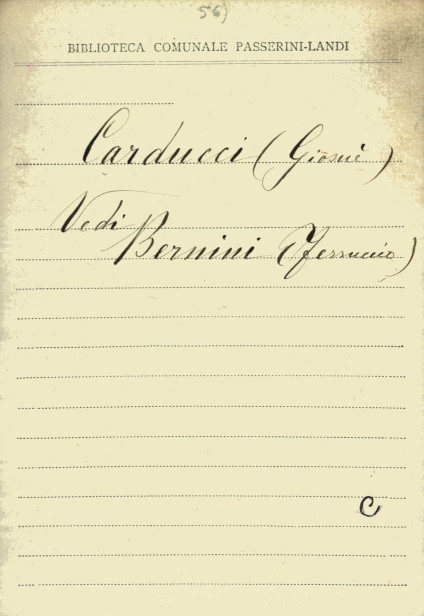 56)
BIBLIOTECA COMUNALE PASSERINI-LANDI
Carducci (Giosuè)
Vedi
Bernini (Ferruccio)
C